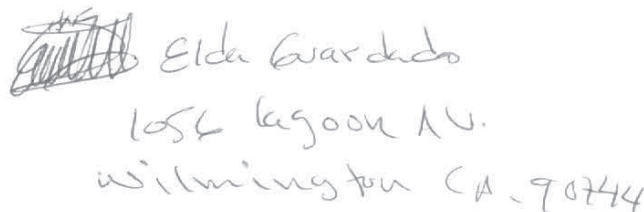 Elda Guardado
1056 Lagoon AV.
Wilmington CA. 90744